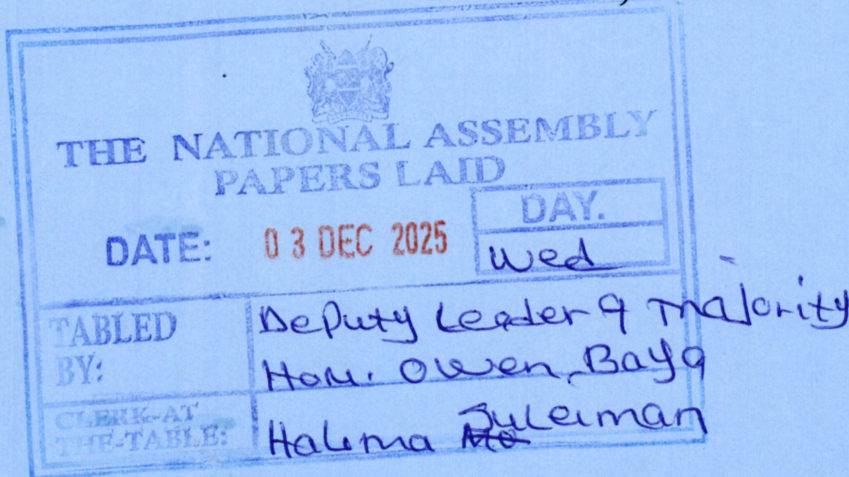 THE NATIONAL ASSEMBLY
PAPERS LAID
DATE: 03 DEC 2025
DAY.
Wed
TABLED BY:
Deputy Leader of majority
Hon. Owen Baya
CLERK-AT THE-TABLE:
Halima Suleiman